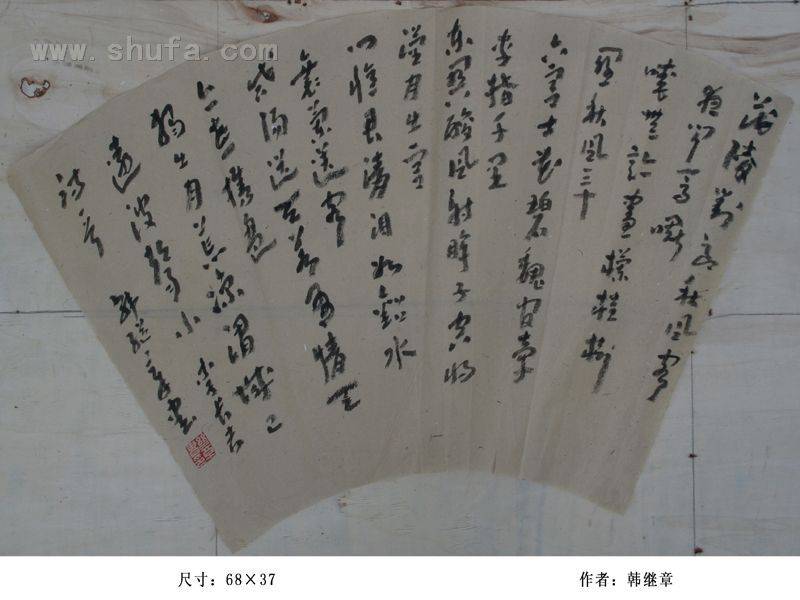 www.shufa.com
茂陵劉郎秋風客
夜聞馬嘶
曉無跡畫欄桂樹
秋風三十
六宮土花碧魏官牽
車指千里
東關酸風射眸子空將
漢月出宮
門憶君清淚如鉛水
衰蘭送客
咸陽道天若有情天
亦老攜盤
獨出月荒涼渭城已
遠波聲小 李長吉
詩一首 韓繼章書
尺寸：68×37
作者：韩继章